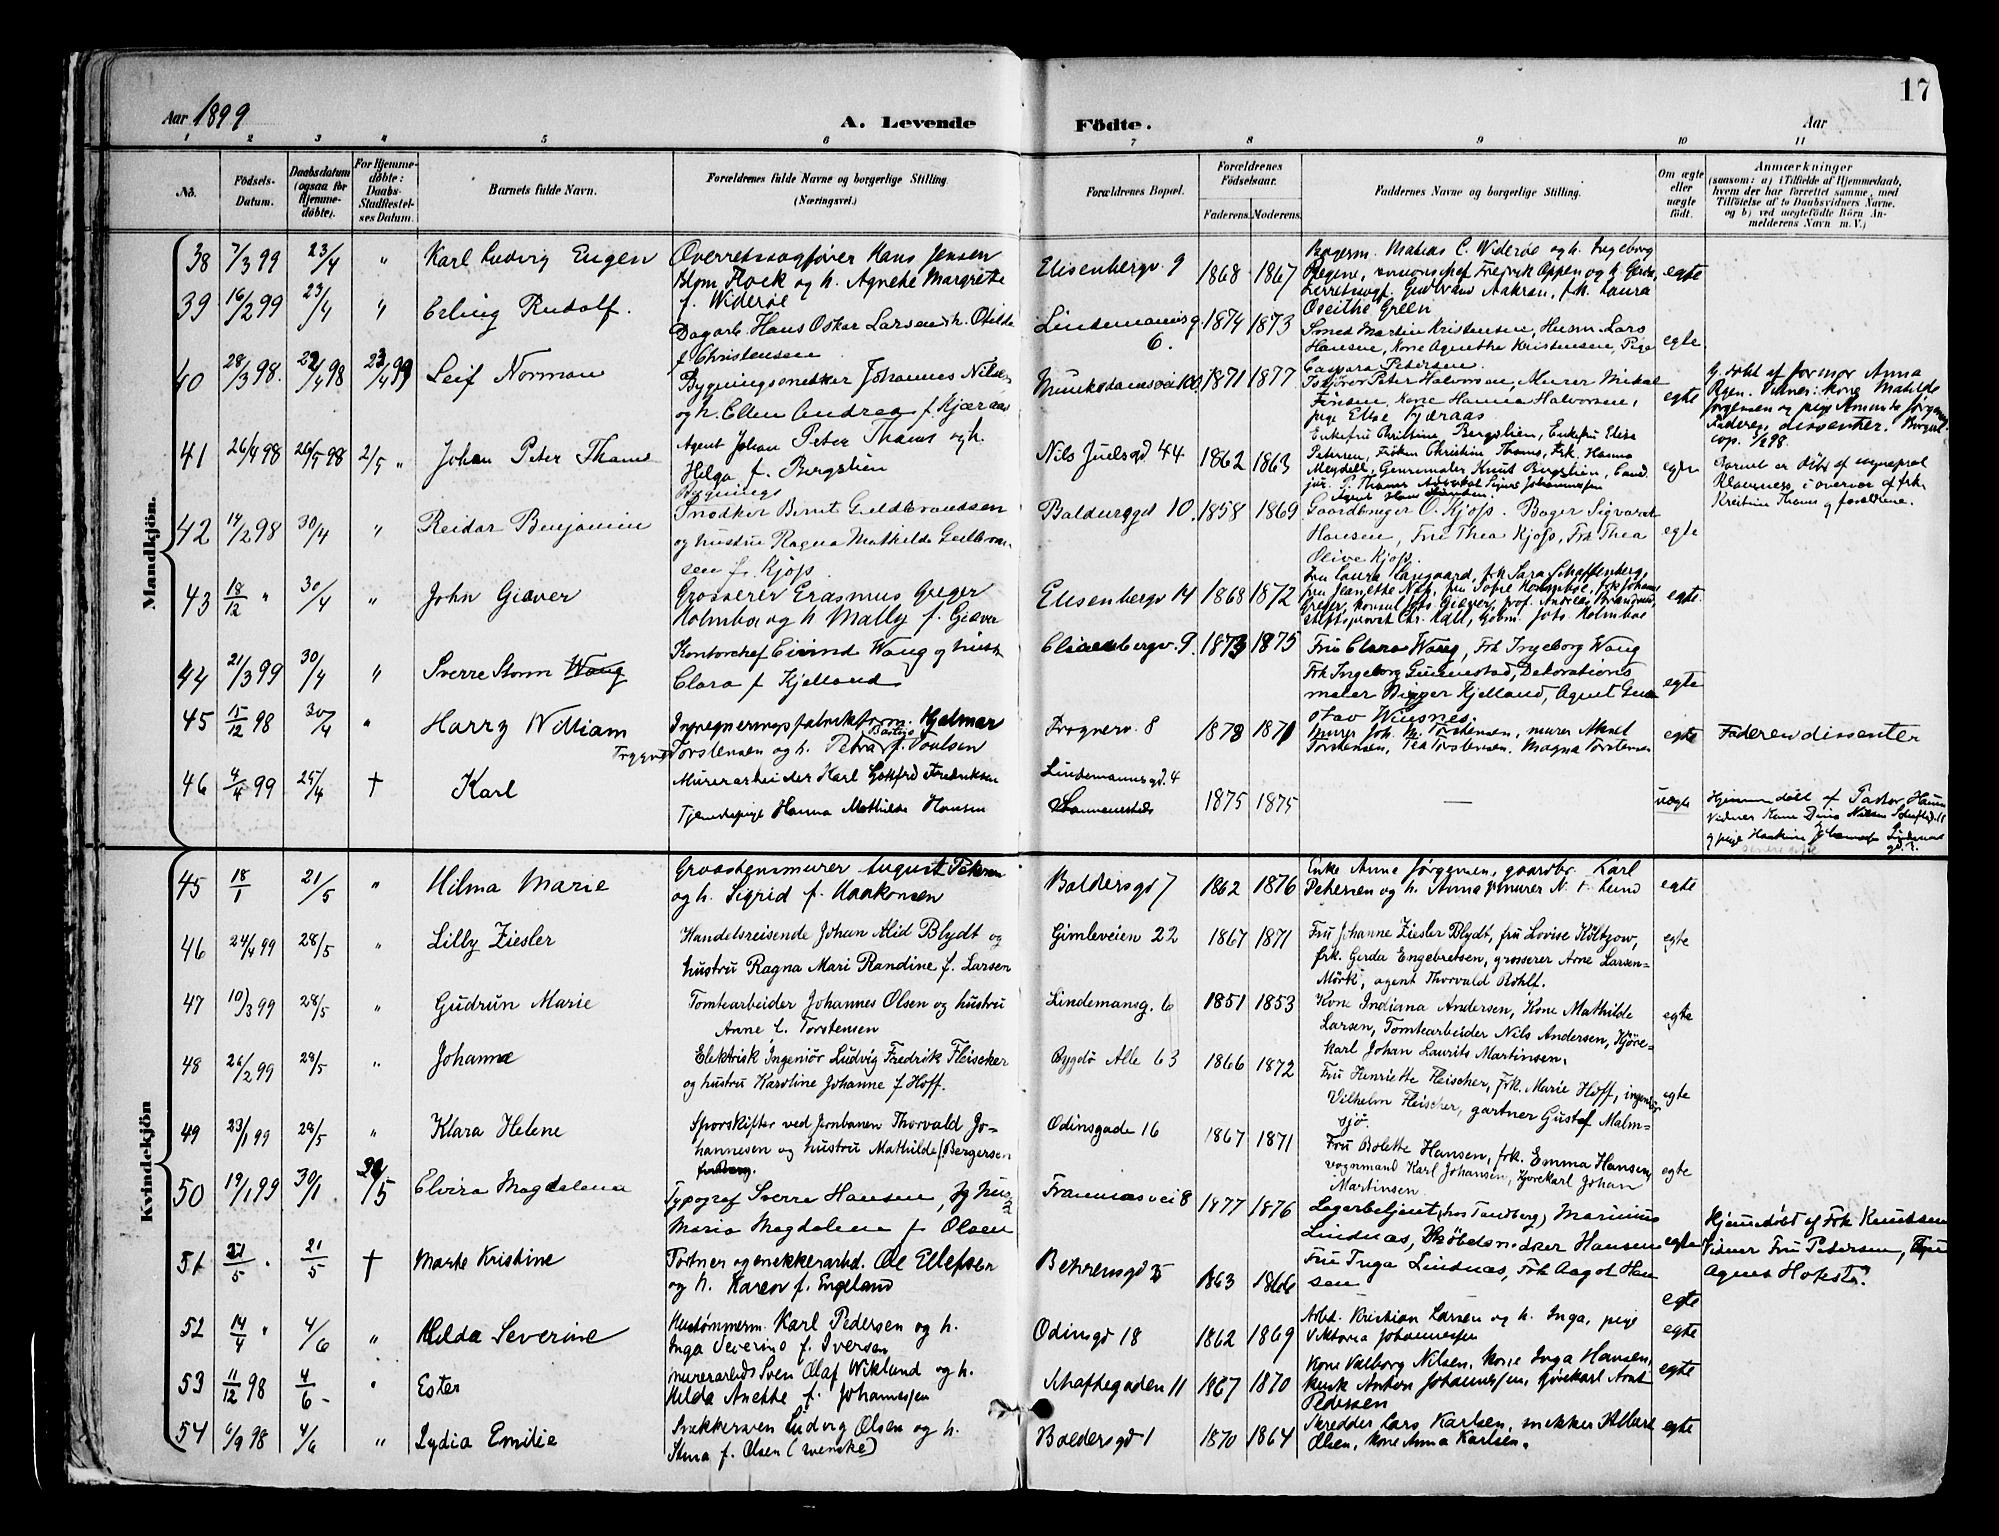 17
Aar 1899
A. Levende Födte.
Aar
1 2 3 4 5 6 7 8 9 10 11
No.
Födsels-Datum.
Daabsdatum (ogsaa for Hjemmedöbte).
For Hjemmedöbte: Daabs-Stadfæstelses Datum.
Barnets fulde Navn.
Forældrenes fulde Navne og borgerlige Stilling. (Næringsvei.)
Forældrenes Bopæl.
Forældrenes Födselsaar.
Faderens. Moderens.
Faddernes Navne og borgerlige Stilling.
Om ægte eller uægte födt.
Anmærkninger
(saasom: a) i Tilfælde af Hjemmedaab, hvem der har forrettet samme, med Tilföielse af to Daabsvidners Navne, og b) ved uægtefödte Börn Anmelderens Navn m. V.)
Mandkjön.
38 7/3 99 23/4 " Karl Ludvig Eugen
Overretssagfører Hans Jensen
Blom Hock og h. Agnethe Margrethe
f. Widerøe
Elisenbergv 9 1868 1867
Mathias C. Widerøe og h. Ingeborg
egte
39 16/2 99 23/4 " Erling Rudolf.
Dagarb. Hans Oskar Larsen og h. Otilde
f Christensen
Lindemannsg 6. 1874 1873
Smed Martin Kristensen, Husm Lars
Hansen, Kone Agnethe Kristensen, Pige
Caspara Petersen
egte
40 28/3 98. 29/4 98 23/4 99 Leif Norman
Bygningssnedker Johannes Nilsen
og h. Ellen Andrea f. Kjæraas
Munkedamsvei 100 1871 1877
Peter Halvorsen, Murer Mikal
Kone Hanna Halvorsen,
pige Elise Kjæraas
egte
H. døbt af formor Anna
Vidner: kone Matilde
Jørgensen og pige
Faderen dissenter. Borgerl
cop. 98.
41 26/4 98 26/5 98 2/5 " Johan Peter Thams
Agent Johan Peter Thams og h.
Helga f. Bergslien
Nils Juelsgd 44 1862 1863
Enkefru Christine Bergslien, Enkefru Elise
Petersen, Frøken Christine Thams, Frk. Hanna
Meydell, Genremaler Knut Bergslien, Cand
jur. P. Thams Advokat Johannessen
egte
Barnet er døbt af sogneprest
Klaveness i overvær af frk.
Kristine Thams og forældrene.
42 14/2 98 30/4 " Reidar Benjamin
Bygnings
Snedker Bernt Guldbrandsen
og hustru Ragna Mathilde Gulbran-
sen f. Kjøss
Baldersgd 10. 1858 1869
Gaardbruger O. Kjøss. Bager Sigvard
Hansen, Fru Thea Kjøss, Frk Thea
Olive Kjøss.
egte
43 18/12 " 30/4 " John Giæver
Grosserer Erasmus Greger
Holmboe og h Mally f. Giæver
Elisenbergv 14 1868 1872
egte.
44 21/3 99 30/4 " Sverre Storm Wang
Kontorchef Eivind Wang og hustr
Clara f Kjelland
Elisenbergv. 9. 1873 1875
Fru Clara Wang, Frk Ingeborg Wang
Frk Ingeborg Gunnestad, Dekorations
maler Birger Kjelland, Agent Gu
stav Winsnes.
egte
45 15/12 98 30/4 " Harry William
Trygve
Hjalmar
Bastus
Torstensen og h. Petra f. Poulsen
Frognerv. 8 1878 1871
murer Joh. M. Torstensen, murer Aksel
Torstensen, Tea Torstensen. Magna Torstensen
egte Faderen dissenter
46 4/4 99 25/4 † Karl
Murerarbeider Karl Gotfred Fredriksen
Tjenestepige Hanna Mathilde Hansen
Lindemannsgd. 4
1875 1875 —
uægte
Hjemmedøbt af Pastor
Kvindekjön
45 18/1 21/5 " Hilma Marie
Graastensmurer August Petersen
og h. Sigrid f. Haakonsen
Baldersgd 7 1862 1876
Enke Anne Jørgensen, gaardbr. Karl
Petersen og h. Anna murer N. Lund
egte
46 24/4 99 28/5 " Lilly Ziesler
Handelsreisende Johan Mid Blydt og
hustru Ragna Mari Randine f. Larsen
Gimleveien 22 1867 1871
Fru Johanne Ziesler Blydt, fru Lovise Holtzow,
frk. Gerda Engebretsen, grosserer Arne Larsen-
Mørk, agent Thorvald Røhlt.
egte
47 10/3 99 28/5 " Gudrun Marie
Tomtearbeider Johannes Olsen og hustru
Anne L. Torstensen
Lindemansg. 6 1851 1853
Kone Indiana Andersen, Kone Mathilde
Larsen, Tomtearbeider Nils Andersen, Kjøre-
karl Johan Laurits Martinsen.
egte
48 26/2 99 28/5 " Johanne
Elektrisk Ingeniør Ludvig Fredrik Fleischer
og hustru Karoline Johanne f. Hoff.
Bygdø Alle 63 1866 1872
Fru Henriette Fleischer, Frk. Marie Hoff, ingeniør
Vilhelm Fleischer, gartner Gustaf Malm-
sjø.
egte
49 23/1 99 28/5 " Klara Helene
Sporskifter ved Jernbanen Thorvald Jo-
hannesen og hustru Mathilde f. Bergersen
Odinsgade 16 1867 1871
Fru Bolette Hansen, frk. Emma Hansen,
vognmand Karl Johansen, Kjørekarl Johan
Martinsen.
egte
50 19/1 99 30/1 28/5 Elvira Magdalena
Typograf Sverre Hansen, og hus
Maria Magdalena f. Olsen
Framnæsvei 8 1877 1876
Lagerbetjent (hos Tandberg) Marinius
Lindnæs, Møbelsnedker Hansen
Fru Inga Lindnæs, Frk Aagot Han
sen
egte
Hjemmedøbt af Frk Knudsen
Vidner Fru Petersen,
51 21/5 " 21/5 † Marte Kristine
Portner og snekkerarbd. Ole Ellefsen
og h. Karen f. Engeland
Behrensgd 5 1863 1866
egte
52 14/4 " 4/6 " Hilda Severine
Hustømmerm. Karl Pedersen og h.
Inga Severine f. Iversen
Odinsgd 18 1862 1869
Arbd. Kristian Larsen og h. Inga, pige
Viktoria Johannessen
egte
53 11/12 98 4/6 - " Ester
murerarbd Sven Olaf Wiklund og h.
Hilda Anette f. Johannessen
Schaftegaden 11 1867 1870
Kone Valborg Nilsen, Kone Inga Hansen,
Kusk Anton Johannessen, Kjørekarl
Pedersen
egte
54 6/9 98 4/6 " Lydia Emilie
Snekkersven Ludvig Olsen og h.
Stina f. Olsen (svenske)
Baldersgd 1 1870 1864
Skredder Lars Karlsen, snekker
Olsen, Kone Anna Karlsen.
egte